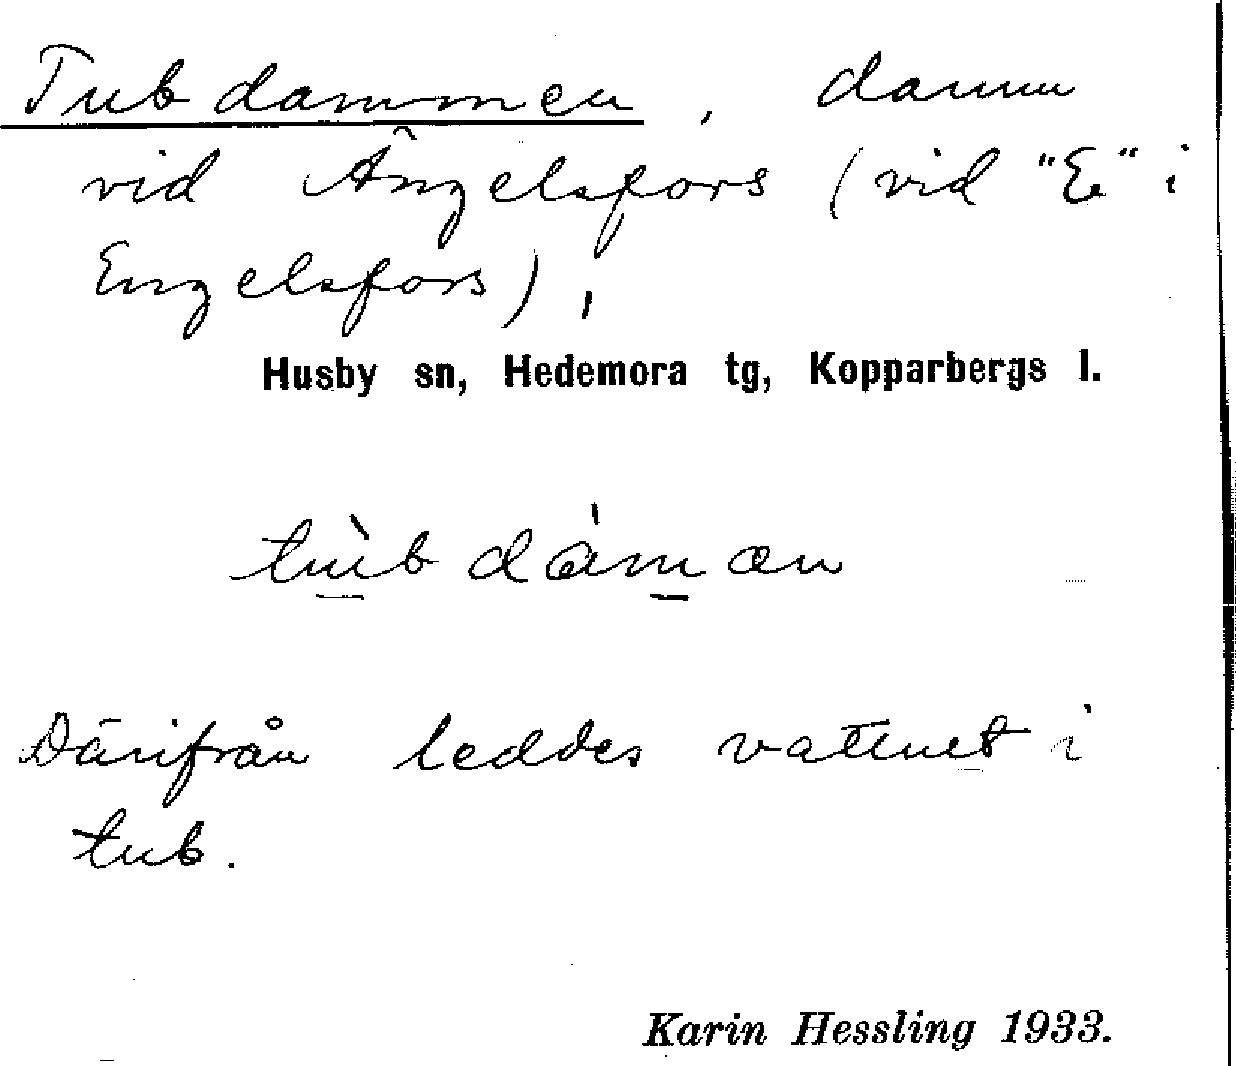 Tubdammen, damm
vid Ängelsfors (vid "E" i
Engelsfors),
Husby sn, Hedemora tg, Kopparbergs l.
tùbdáman
Därifrån leddes vattnet i
tub.
Karin Hessling 1933.